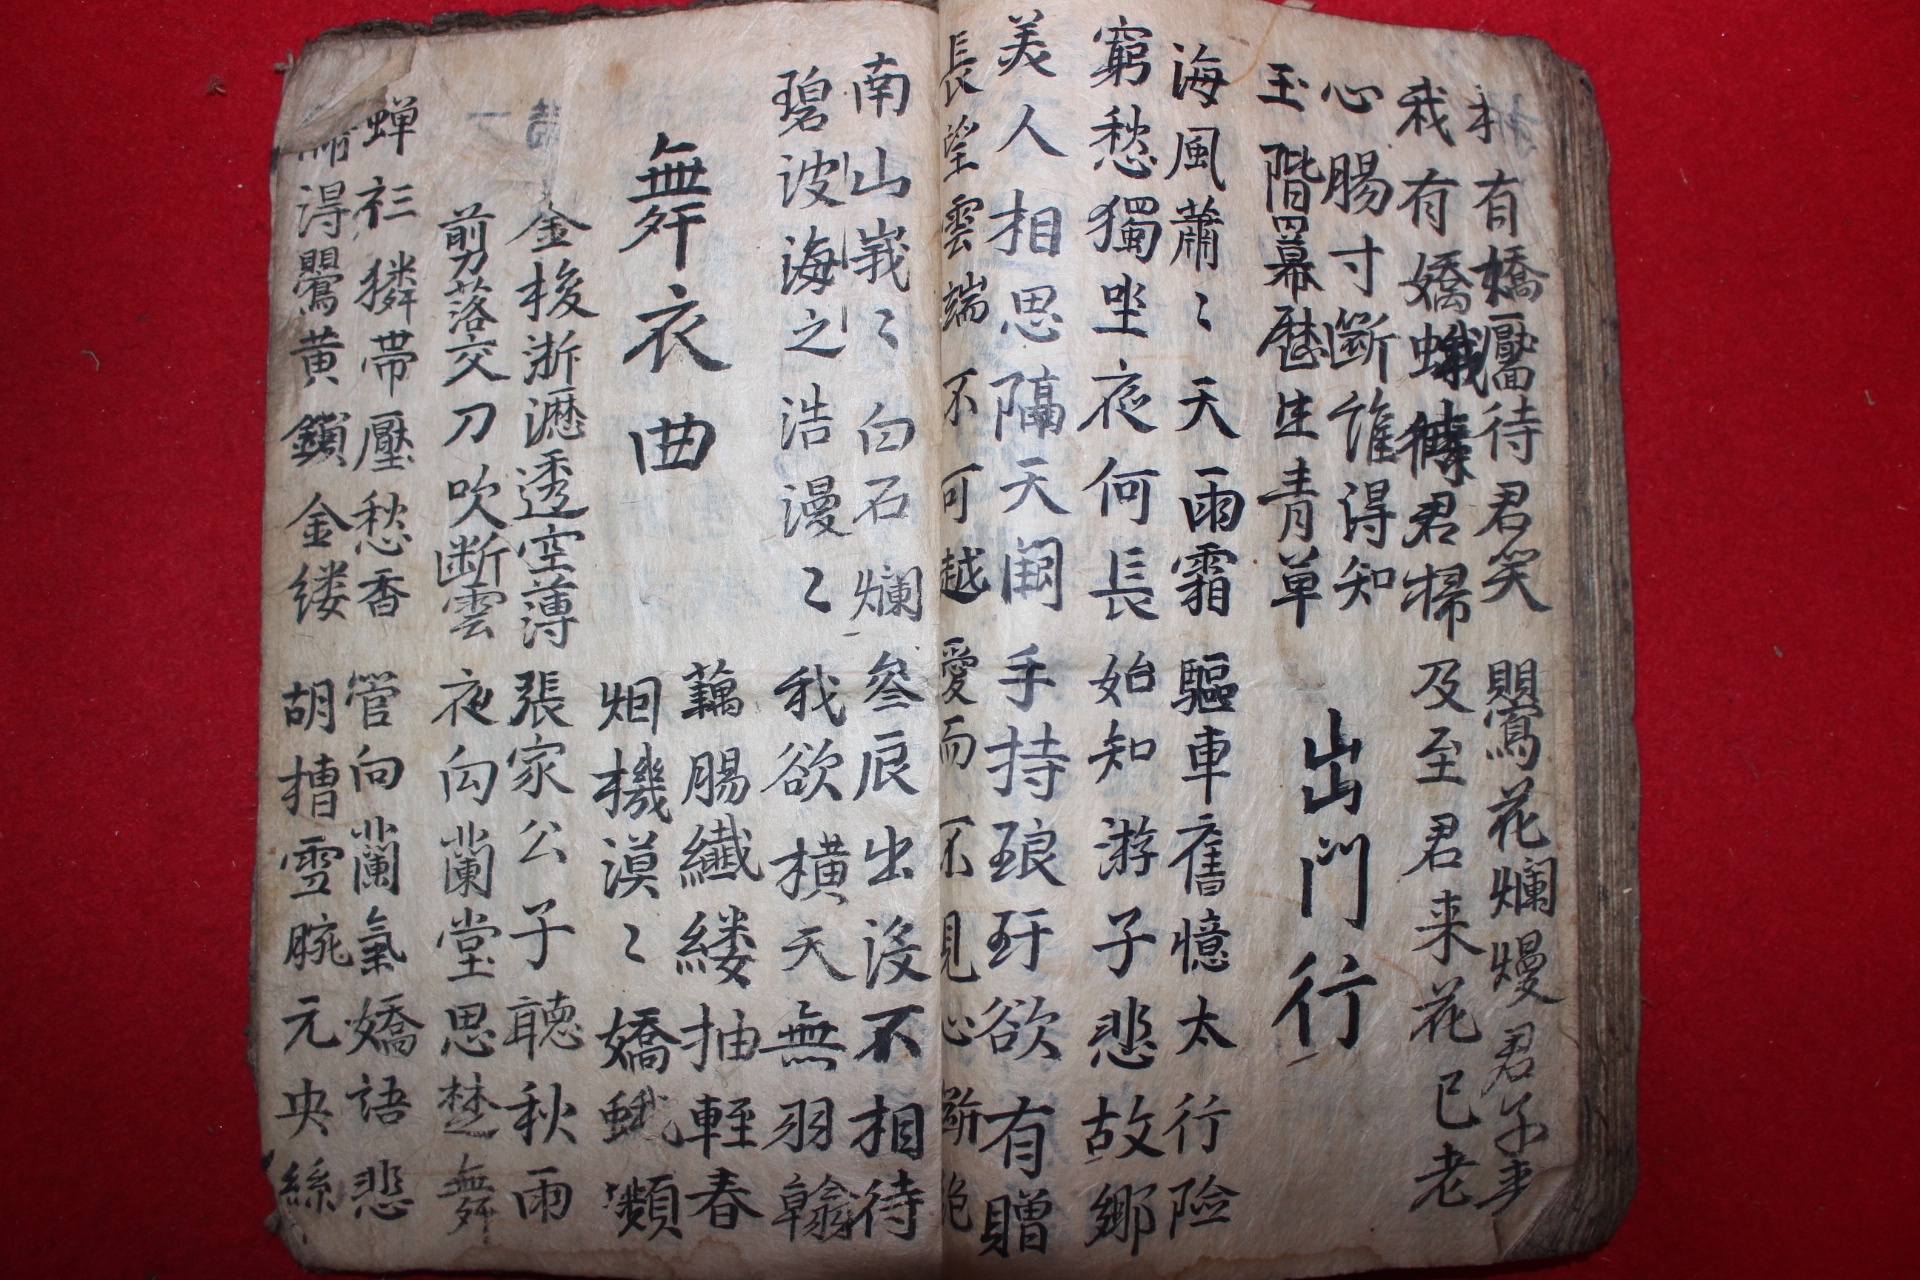 我有嬌靨待君笑 鶯花爛熳君子来
我有嬌蛾待君掃 及至君来花已老
心腸寸斷誰得知
玉階羃歷生青草
出門行
海風蕭〻天雨霜 驅車舊憶太行險
窮愁獨坐夜何長 始知游子悲故鄉
美人相思隔天闕 手持琅玕欲有贈
長望雲端不可越 愛而不見心斷絶
南山峩〻白石爛 叅辰出没不相待
碧波海之浩漫〻 我欲橫天無羽翰
舞衣曲
藕腸纖縷抽輕春
烟機漠〻嬌蛾嚬
金梭淅瀝透空薄 張家公子聽秋雨
剪落交刀吹断雲 夜向蘭堂思楚舞
蟬衫獜帶壓愁香 管向蘭氣嬌語悲
得鶯黄鎖金縷 胡槽雪腕元央絲